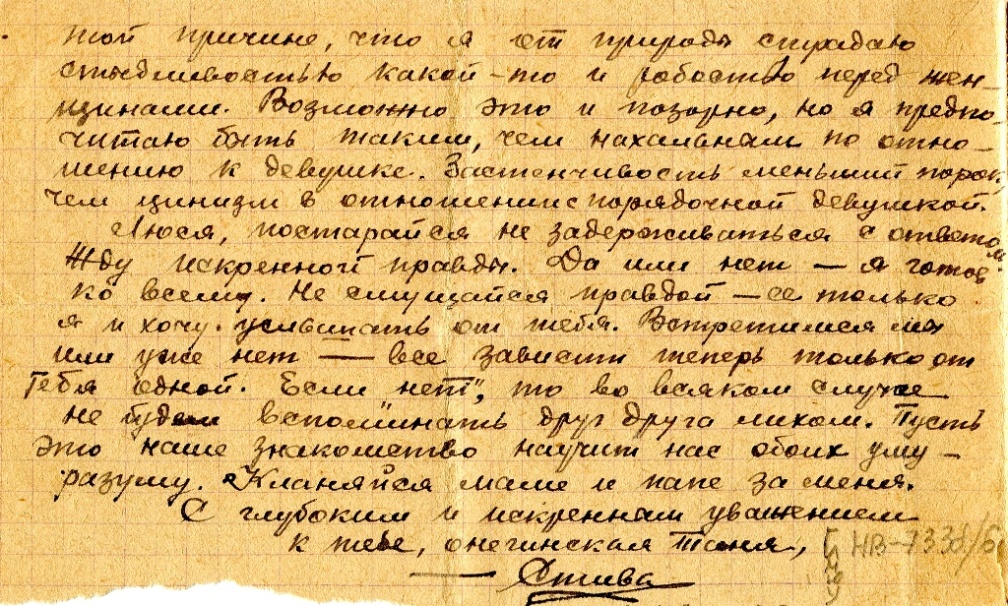 той причине, что я от природы страдаю
стыдливостью какой-то и робостью перед жен-
щинами. Возможно это и позорно, но я предпо-
читаю быть таким, чем нахальным по отно-
шению к девушке. Застенчивость меньший порок,
чем цинизм в отношении с порядочной девушкой.
Люся, постарайся не задерживаться с ответом
Жду искренной правды. Да или нет — я готов
ко всему. Не смущайся правдой — ее только
я и хочу услышать от тебя. Встретимся мы
или уже нет — все зависит теперь только от
тебя одной. Если "нет", то во всяком случае
не будем вспоминать друг друга лихом. Пусть
это наше знакомство научит нас обоих уму-
разуму. Кланяйся маме и папе за меня.
С глубоким и искренным уважением
к тебе, онегинская Таня,
— Стива
НВ-7338/6